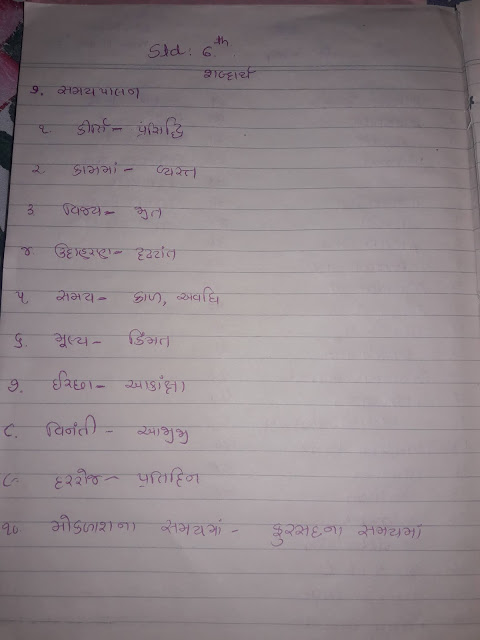 Std: 6th
શબ્દાર્થ
૭. સમયપાલન
૧ કીર્તિ - પ્રસિદ્ધિ
૨ કામમાં - વ્યસ્ત
૩ વિજય - જીત
૪ ઉદાહરણ - દૃષ્ટાંત
૫ સમય - કાળ, અવધિ
૬. મૂલ્ય - કિંમત
૭. ઈચ્છા - આકાંક્ષા
૮. વિનંતી - આજીજી
૯ દરરોજ - પ્રતિદિન
૧૦ મોકળાશના સમયમાં - ફુરસદના સમયમાં